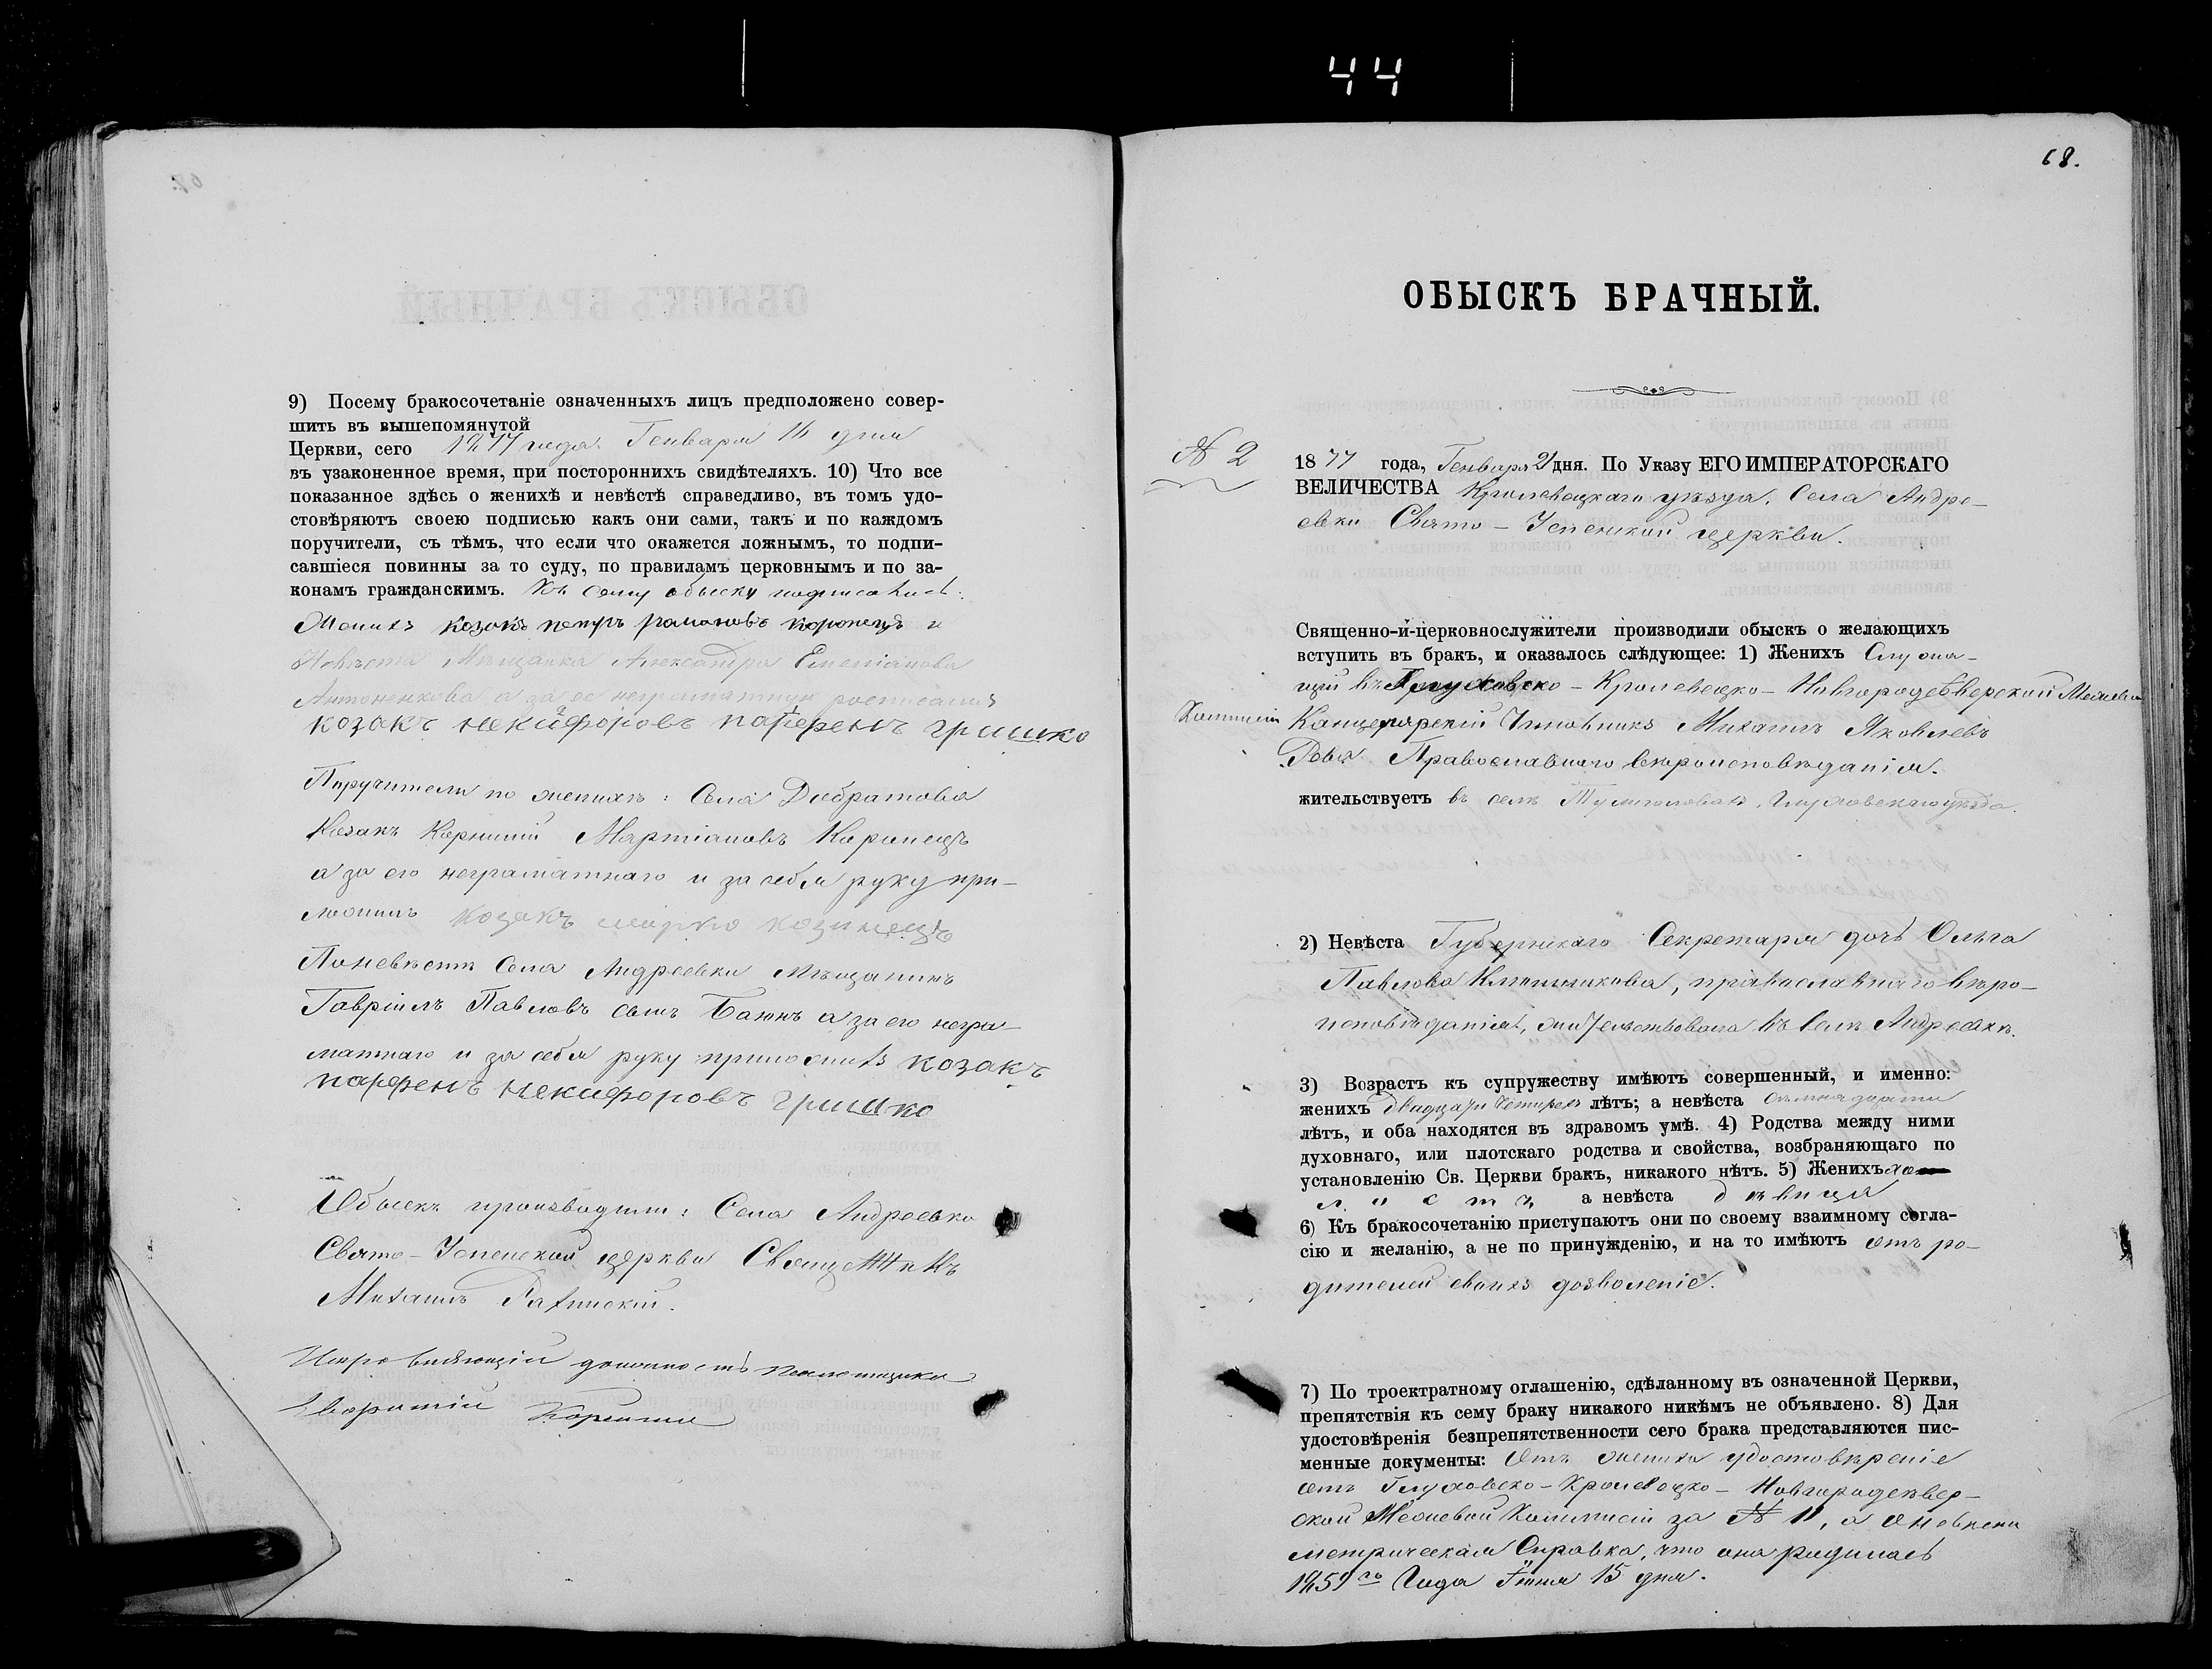 44
9) Посему бракосочетаніе означенныхъ лицъ предположено совер-
шить въ вышепомянутой
Церкви, сего 1877 года Генваря 16 дня
въ узаконенное время, при постороннихъ свидѣтеляхъ. 10) Что все
показанное здѣсь о женихѣ и невѣстѣ справедливо, въ томъ удо-
стовѣряютъ своею подписью какъ они сами, такъ и по каждомъ
поручители, съ тѣмъ, что если что окажется ложнымъ, то подпи-
савшіеся повинны за то суду, по правиламъ церковнымъ и по за-
конамъ гражданскимъ. Къ сему обыску подписались:
Женихъ козакъ петръ рамановъ коропецъ и
Невѣста Мѣщанка Александра Емеліанова
Антоненкова а за ее неграматную росписался
козакъ некифоровъ парфенъ гришко
Поручители по женихѣ: Села Добратова
Козакъ Корнилій Мартіановъ Коропецъ
а за его неграматнаго и за себя руку при-
ложилъ козакъ марко козинецъ
По невѣстѣ Села Андреевки Мѣщанинъ
Гавріилъ Павловъ сынъ Баюнъ а за его негра-
матнаго и за себя руку приложилъ козакъ
парфенъ некифоровъ гришко
Обыскъ производили: Села Андреевки
Свято-Успенской церкви Священникъ
Михаилъ
должность псаломщика
68.
ОБЫСКЪ БРАЧНЫЙ.
№ 2
1877 года, Генваря 21 дня. По Указу ЕГО ИМПЕРАТОРСКАГО
ВЕЛИЧЕСТВА Кролевецкаго уѣзда, Села Андре-
евки Свято-Успенской церкви.
Священно-и-церковнослужители производили обыскъ о желающихъ
вступить въ бракъ, и оказалось слѣдующее: 1) Женихъ Служа-
щій въ Глуховско-Кролевецко-Новгородсѣверской Межевой
Коммисіи Канцелярскій Чиновникъ Михаилъ Яковлевъ
Православнаго вѣроисповѣданія.
жительствуетъ въ селѣ Глуховскаго уѣзда.
2) Невѣста Губернскаго Секретаря дочь Ольга
Павлова Ключникова, православнаго вѣро-
исповѣданія, жительствовала въ селѣ Андреевкѣ.
3) Возрастъ къ супружеству имѣютъ совершенный, и именно:
женихъ двадцати четырехъ лѣтъ; а невѣста семнадцати
лѣтъ, и оба находятся въ здравомъ умѣ. 4) Родства между ними
духовнаго, или плотскаго родства и свойства, возбраняющаго по
установленію Св. Церкви бракъ, никакого нѣтъ. 5) Женихъ хо
лостъ а невѣста дѣвица
6) Къ бракосочетанію приступаютъ они по своему взаимному согла-
сію и желанію, а не по принужденію, и на то имѣютъ отъ ро-
дителей своихъ дозволеніе.
7) По троектратному оглашенію, сдѣланному въ означенной Церкви,
препятствія къ сему браку никакого никѣмъ не объявлено. 8) Для
удостовѣренія безпрепятственности сего брака представляются пис-
менные документы: Отъ жениха удостовѣреніе
отъ Глуховско-Кролевецко-Новгородсѣвер-
ской Межевой Коммисіи за № 11, а о невѣстѣ
метрическая Справка, что она родилась
1859го Года Іюня 15 дня.